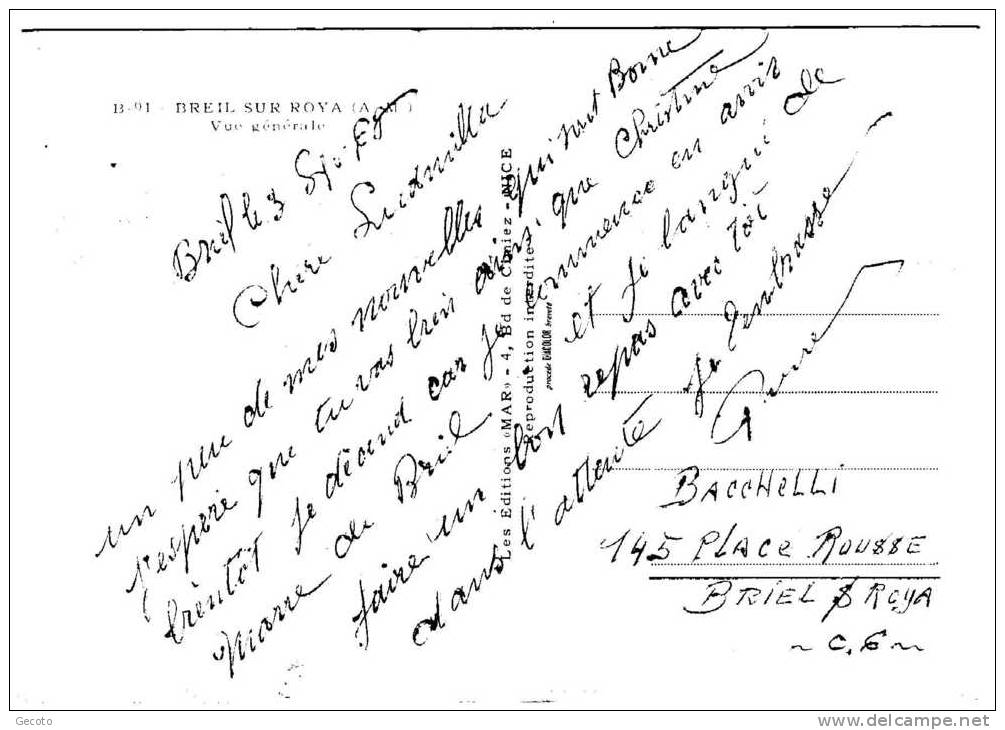 B-91 - BREIL SUR ROYA (A.-M.)
Vue générale
Breil le 3
Chere Ludmilla
un peu de mes nouvelles qui sont Bonne
j'espère que tu vas bien ainsi que Christine
bientôt je décend car je commence en avoir
marre de Breil et je langui de
faire un bon repas avec toi
dans l'attente je t'embrasse
Les Editions «MAR» - 4, Bd de Cimiez - NICE
Reproduction interdite
procédé GIACOLOR breveté
BACCHELLI
145 PLACE ROUSSE
BRIEL S ROYA
~ C.E ~
Gecoto
www.delcampe.net